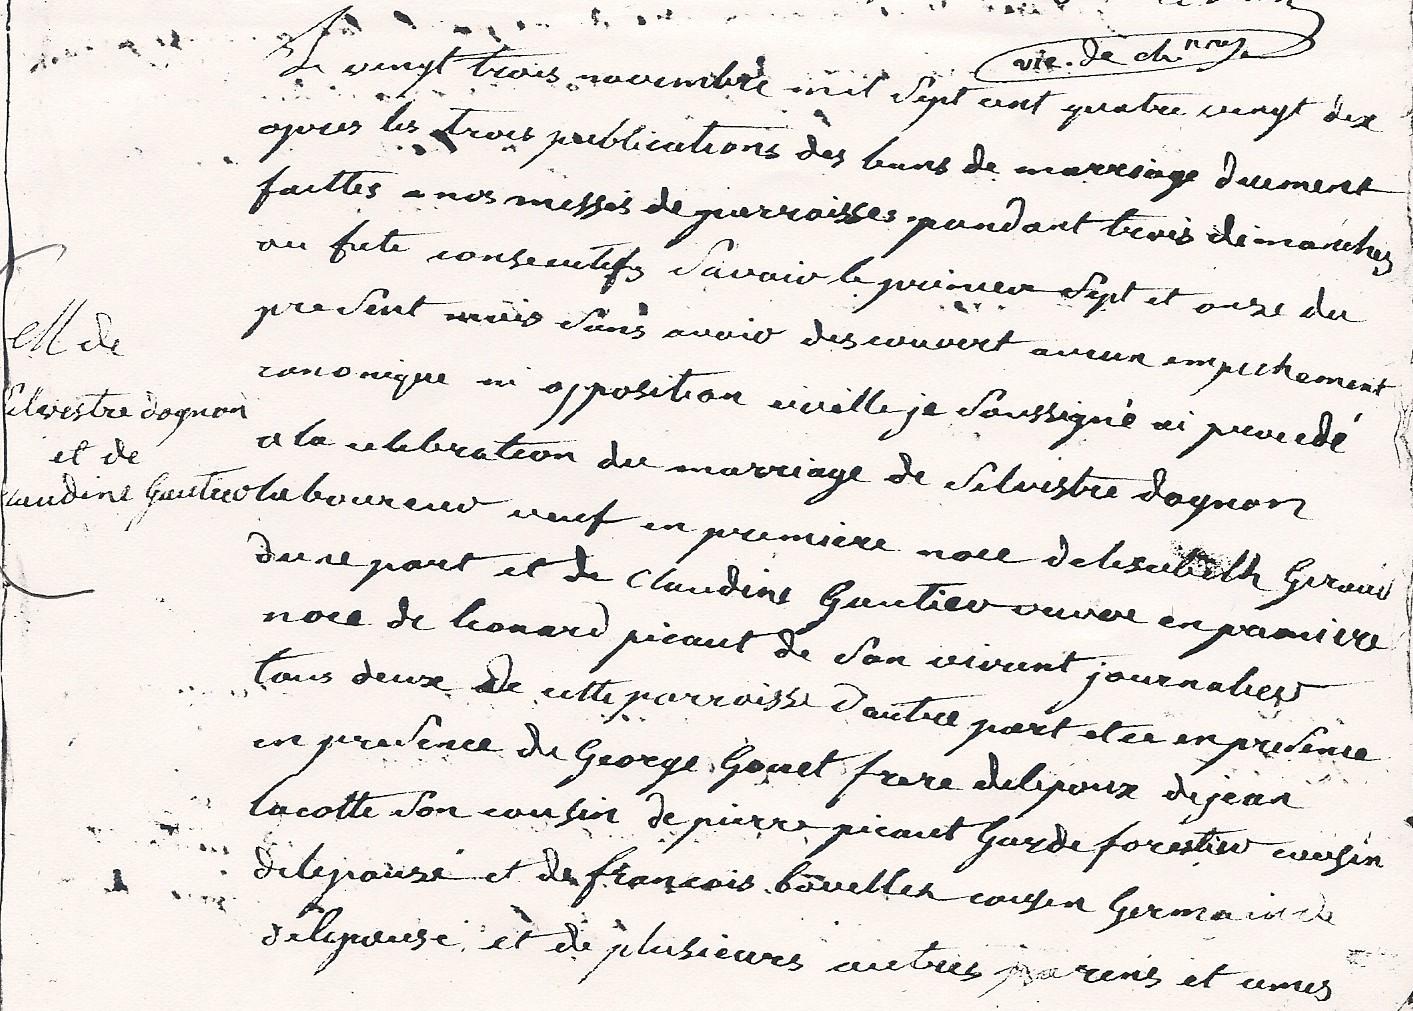 vic. de ch.nnes
Le vingt trois novembre mil sept cent quatre vingt dix
apres les trois publications des bans de marriage duement
faittes a nos messes de parroisses pandant trois dimanches
ou fete consecutifs savoir le primier sept et onze du
present mois sans avoir descouvert aucun empechement
canonique ni opposition civille je soussigné ai procedé
a la celebration du marriage de Silvestre dognon
laboureur veuf en premiere noce delisabeth Geraud
dune part et de Claudine Gautier veuve en premiere
noce de leonard picaut de son vivant journalier
tous deux de cette parroisse d'autre part et ce en presence
en presence de George Gouet frere delepoux de jean
lacotte son cousin de pierre picaut Garde forestier cousin
delepouse et de francois bovelles cousin Germain de
delepouse et de plusieurs autres parens et amis
M de
Silvestre dognon
et de
Claudine Gautier